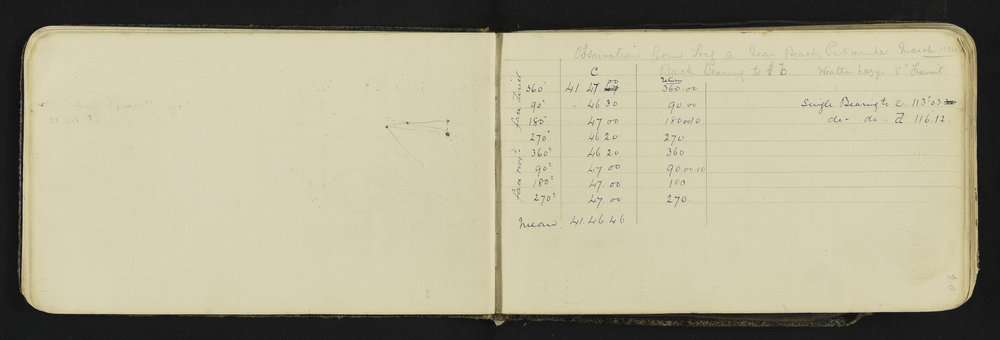 Observations from Trig a near Beach March
C Back Bearing to Weather hazy 5" Transit
return
face direct
360° 41 47 00 360.00
90° - 46 30 90.00
180° 47 00 180 00 10
270° 46 20 270
360° 46 20 360
90° 47.00 90.00.10
180° 47.00 180
270° 47.00 270.
Mean 41.46.46
Single Bearing to C 113°03
do- do- 116.12.